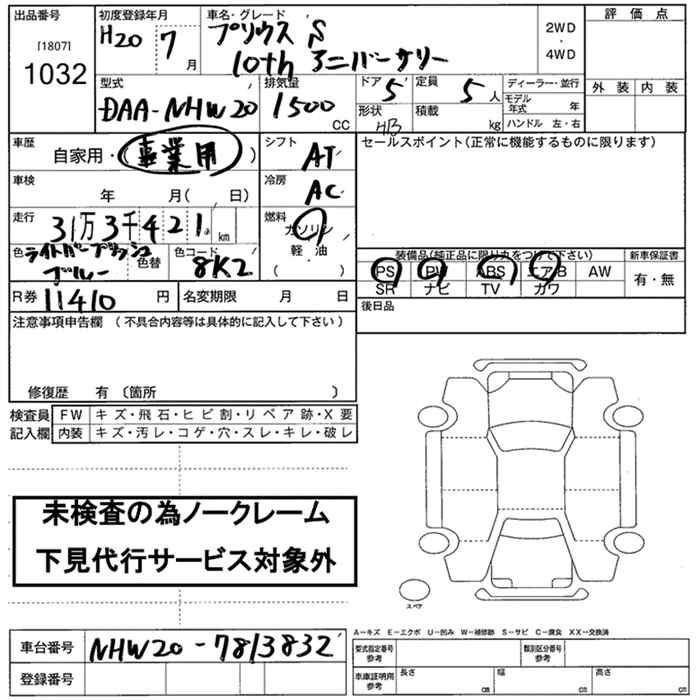 出品番号 初度登録年月 車名・グレード 評価点
[1807] H20 7月 プリウス S 2WD・4WD
1032 10th アニバーサリー
型式 排気量 ドア 5 定員 5人 ディーラー・並行 外装 内装
DAA-NHW20 1500 CC 形状 HB 積載 kg モデル年式 年
ハンドル 左・右
車歴 自家用・(事業用) シフト AT セールスポイント(正常に機能するものに限ります)
車検 年 月( 日) 冷房 AC
走行 31万3千421km 燃料 ガソリン
軽油
( )
色 ライトパープリッシュブルー 色替 色コード 8K2
装備品(純正品に限り丸をつけて下さい) 新車保証書
PS PW ABS エアB AW 有・無
SR ナビ TV カワ
R券 11410円 名変期限 月 日 後日品
注意事項申告欄 (不具合内容等は具体的に記入して下さい)
修復歴 有 〔箇所 〕
検査員記入欄 FW キズ・飛石・ヒビ割・リペア跡・X要
内装 キズ・汚レ・コゲ・穴・スレ・キレ・破レ
未検査の為ノークレーム
下見代行サービス対象外
スペア
A-キズ E-エクボ U-凹み W-補修跡 S-サビ C-腐食 XX-交換済
車台番号 NHW20-7813832
登録番号
型式指定番号 参考 類別区分番号 参考
車庫証明用 参考 長さ cm 幅 cm 高さ cm